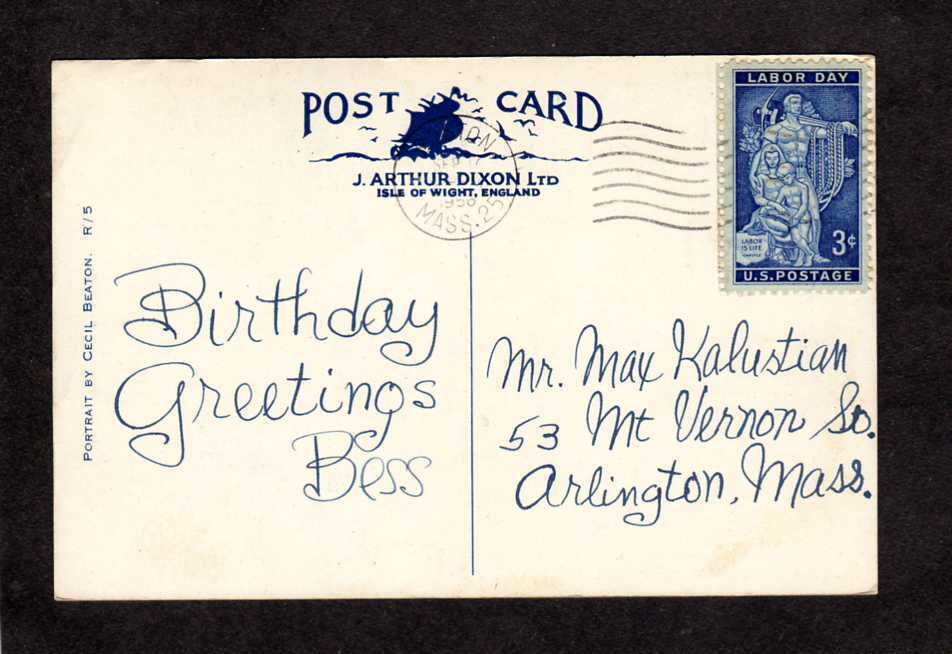 POST CARD
J. ARTHUR DIXON LTD
ISLE OF WIGHT, ENGLAND
1956
MASS. 25
LABOR DAY
LABOR
IS LIFE
3¢
U.S. POSTAGE
PORTRAIT BY CECIL BEATON. R/5
Birthday
Greetings
Bess
Mr. Max Kalustian
53 Mt Vernon St.
Arlington, Mass.